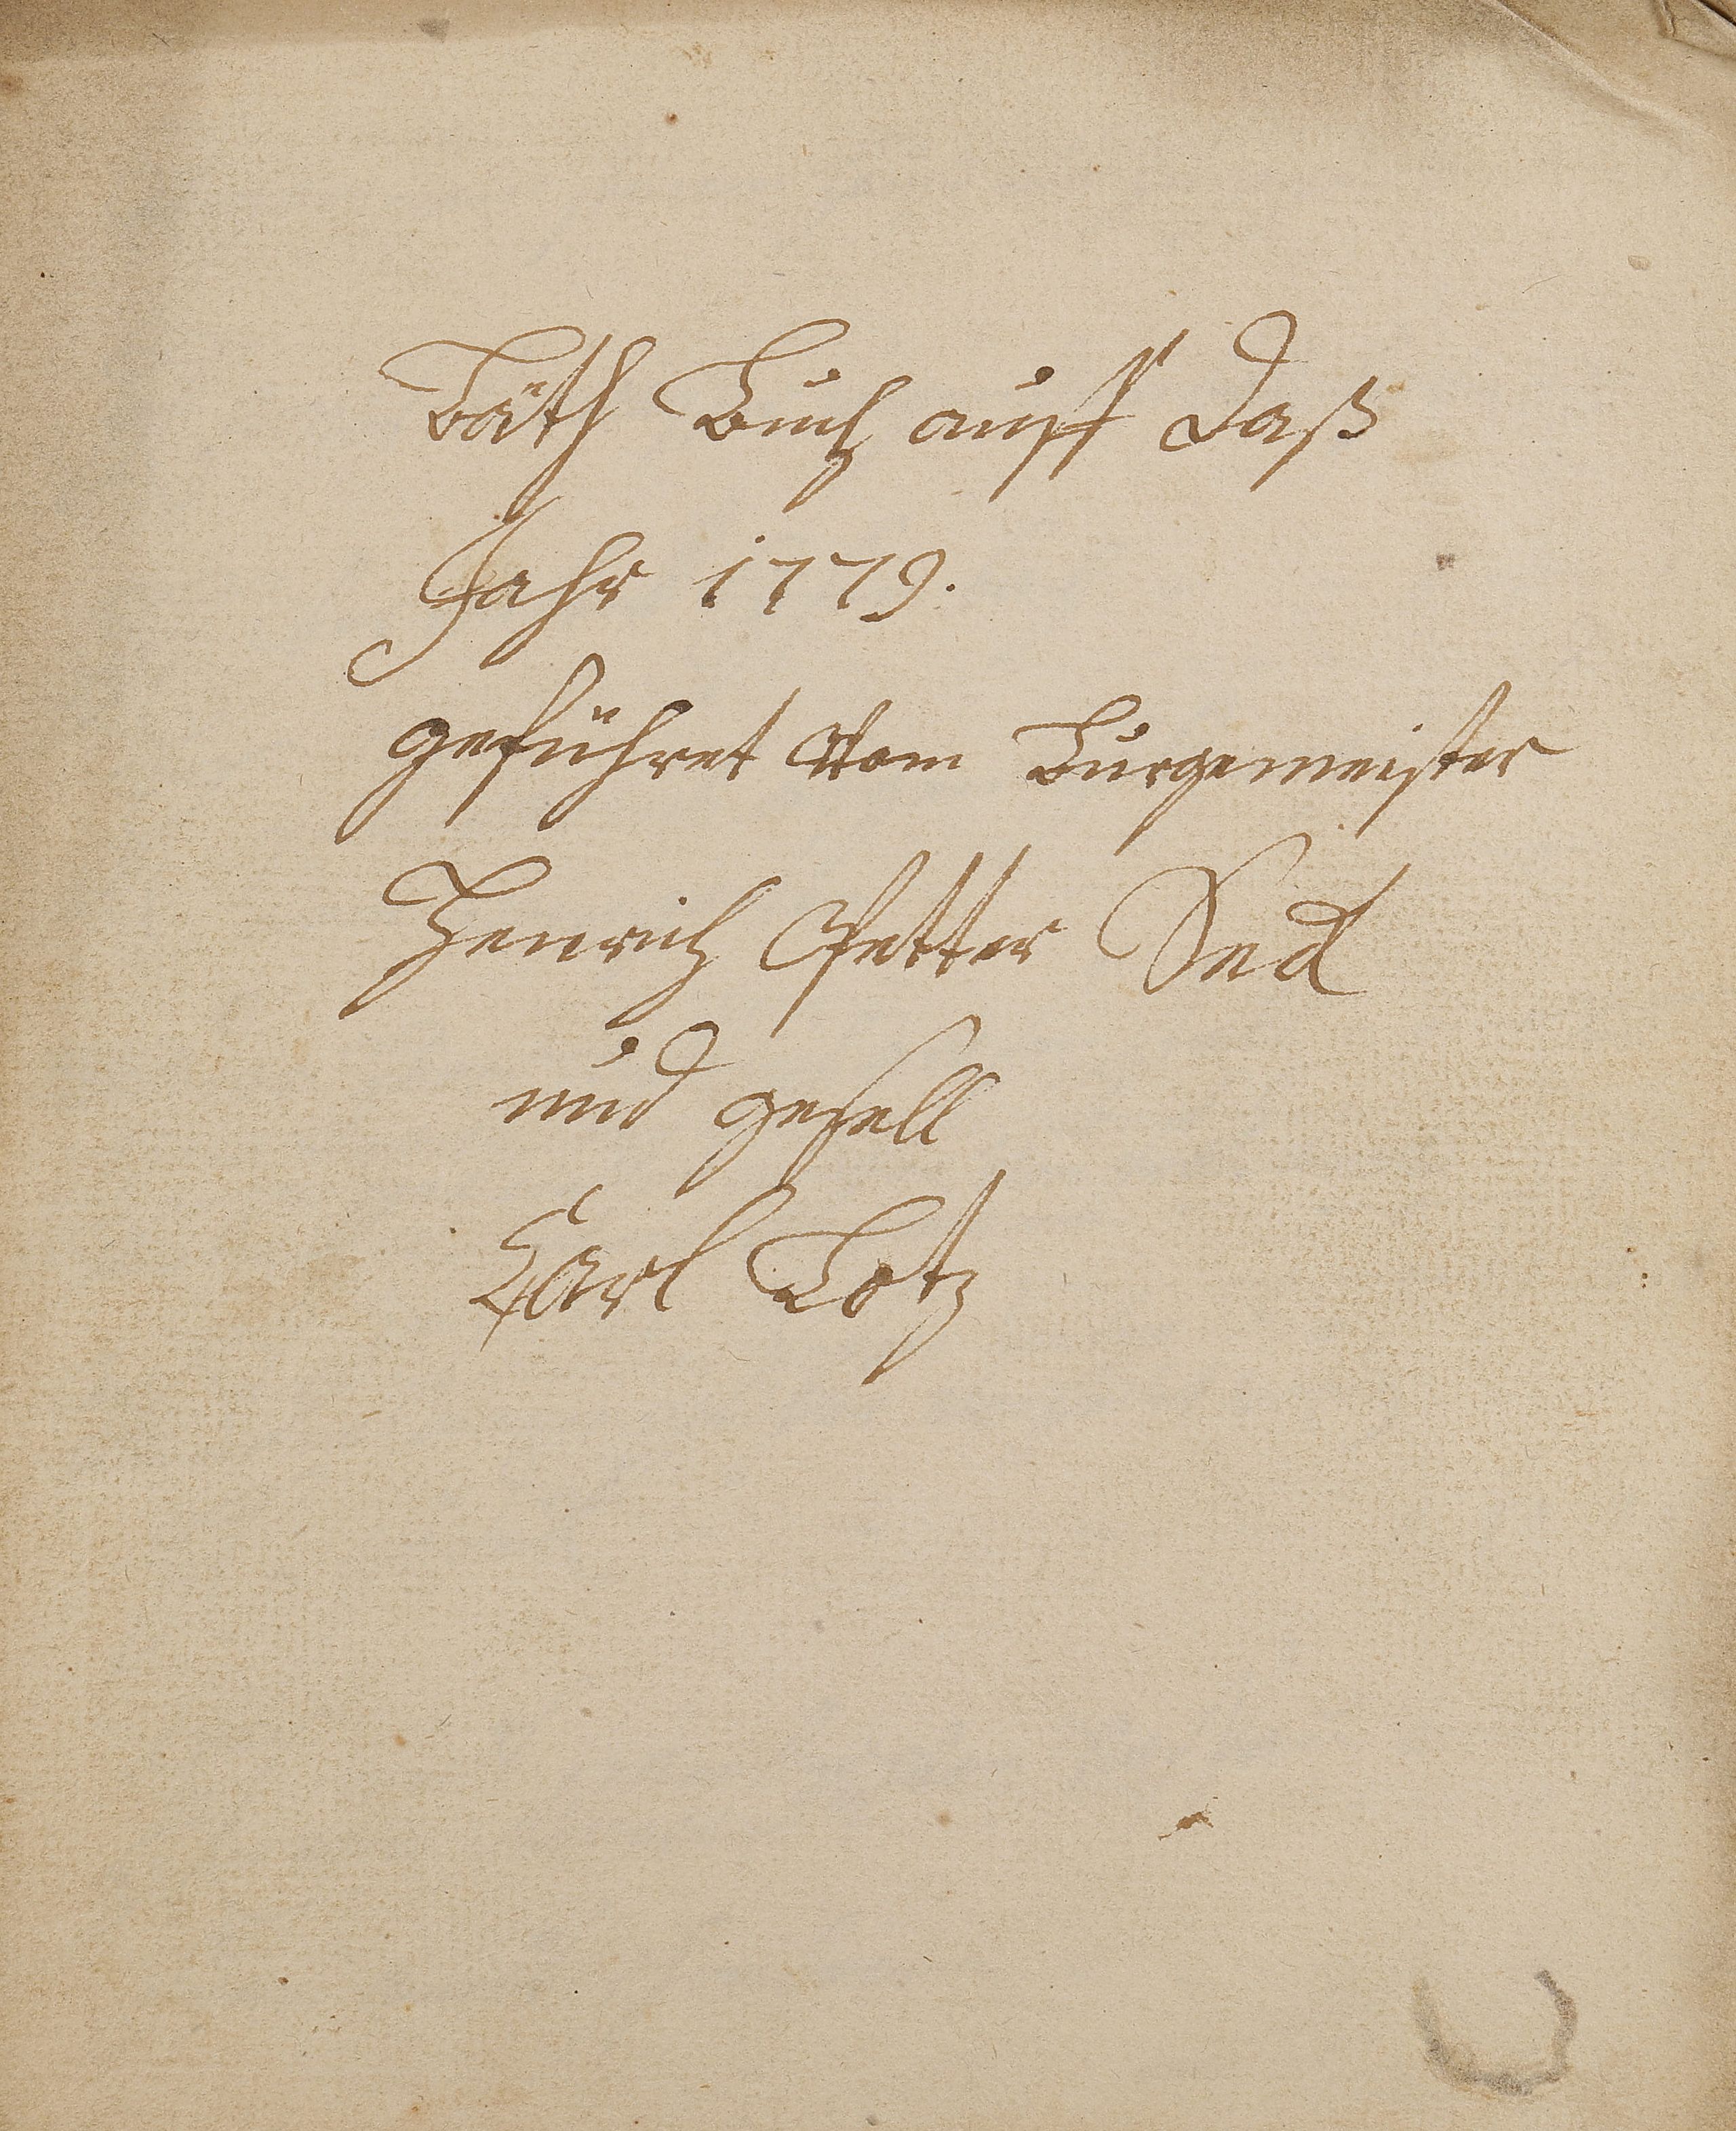 Bäth Buch auff daß
Jahr 1779.
geführet Vom Burgemeister
Henrich Petter
und gesell
Carl Lotz